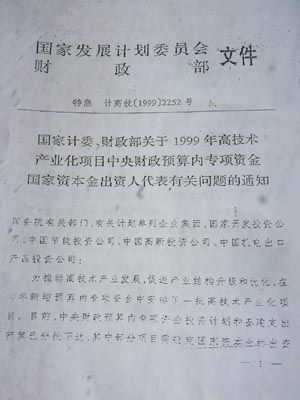 国家发展计划委员会
财政部
文件
特急 计高技[1999]2252号
国家计委、财政部关于1999年高技术
产业化项目中央财政预算内专项资金
国家资本金出资人代表有关问题的通知
国务院有关部门,有关计划单列企业集团,国家开发投资公
司、中国节能投资公司、中国高新投资公司、中国机电出口
产品投资公司:
为推动高技术产业发展,促进产业结构升级和优化,在
今年新增预算内专项资金中安排了一批高技术产业化项
目。目前,中央财政预算内专项资金投资计划和基建支出
预算已分批下达,其中部分项目需确定国家资本金的出资
— 1 —